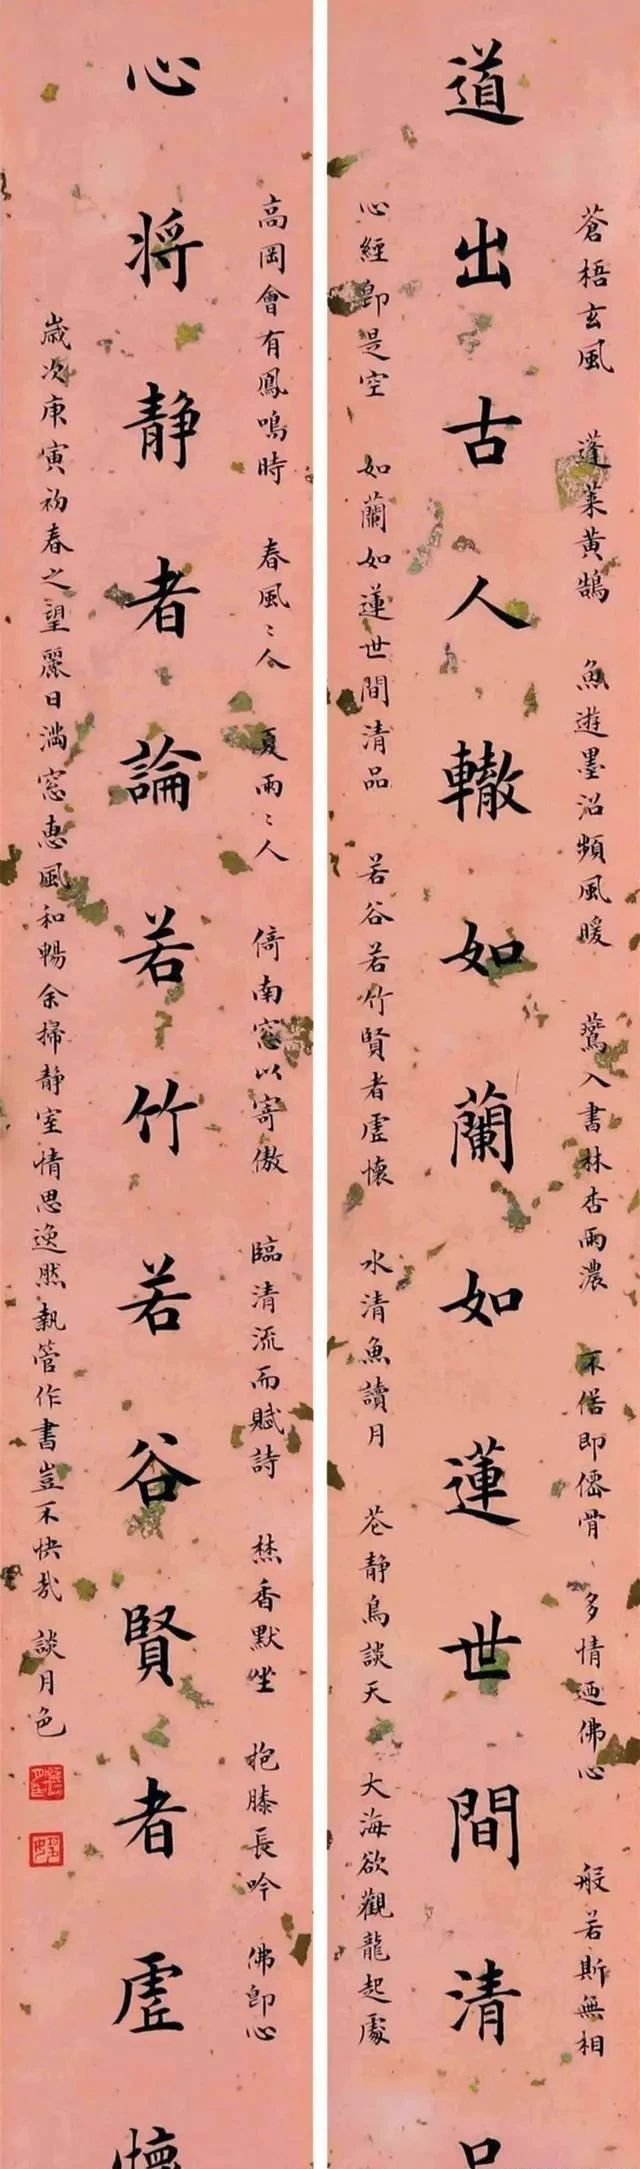 蒼梧玄風 蓬萊黄鵠 魚遊墨沼頻風暖 鶯入書林杏雨濃 不俗即僊骨 多情迺佛心 般若斯無相
道出古人轍如蘭如蓮世間清品
心經即是空 如蘭如蓮世間清品 若谷若竹賢者虛懷 水清魚讀月 花静鳥談天 大海欲觀龍起處
高岡會有鳳鳴時 春風々人 夏雨々人 倚南窓以寄傲 臨清流而賦詩 焚香默坐 抱膝長吟 佛即心
心將静者論若竹若谷賢者虛懷
歲次庚寅初春之望麗日滿窓惠風和暢余掃静室情思逸然執管作書豈不快哉 談月色